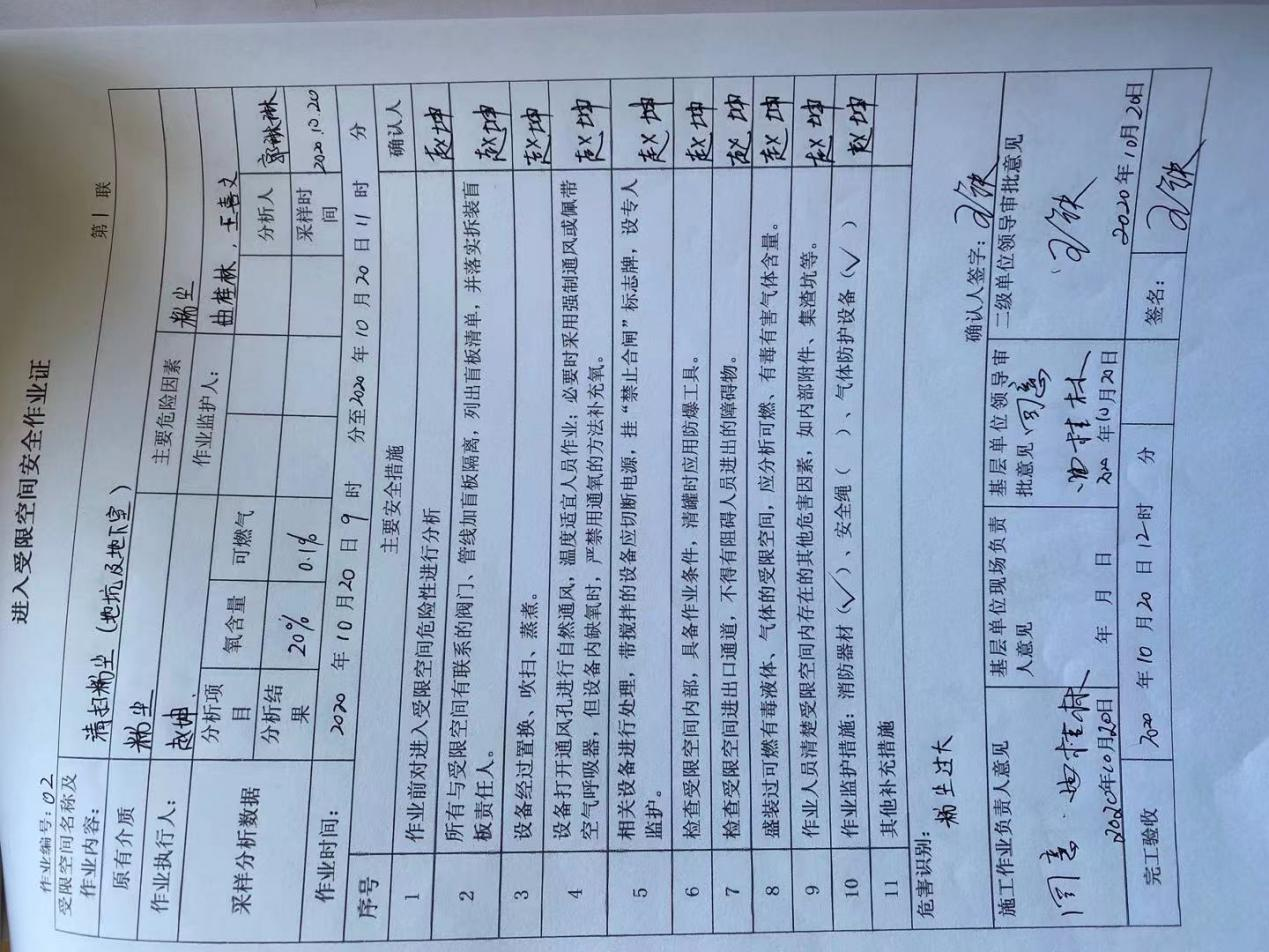 进入受限空间安全作业证
作业编号:02
第1联
受限空间名称及作业内容:
清扫粉尘(地坑及地下室)
原有介质
粉尘
主要危险因素
粉尘
作业执行人:
赵坤
作业监护人:
曲桂林、王喜文
采样分析数据
分析项目
氧含量
可燃气
分析人
分析结果
20%
0.1%
采样时间
2020.10.20
作业时间:
2020年10月20日9时 分至2020年10月20日11时 分
序号
主要安全措施
确认人
1
作业前对进入受限空间危险性进行分析
赵坤
2
所有与受限空间有联系的阀门、管线加盲板隔离,列出盲板清单,并落实拆装盲
板责任人。
赵坤
3
设备经过置换、吹扫、蒸煮。
赵坤
4
设备打开通风孔进行自然通风,温度适宜人员作业;必要时采用强制通风或佩带
空气呼吸器,但设备内缺氧时,严禁用通氧的方法补充氧。
赵坤
5
相关设备进行处理,带搅拌的设备应切断电源,挂“禁止合闸”标志牌,设专人
监护。
赵坤
6
检查受限空间内部,具备作业条件,清罐时应用防爆工具。
赵坤
7
检查受限空间进出口通道,不得有阻碍人员进出的障碍物。
赵坤
8
盛装过可燃有毒液体、气体的受限空间,应分析可燃、有毒有害气体含量。
赵坤
9
作业人员清楚受限空间内存在的其他危害因素,如内部附件、集渣坑等。
赵坤
10
作业监护措施:消防器材(√)、安全绳( )、气体防护设备(√)
赵坤
11
其他补充措施
危害识别:
粉尘过大
确认人签字:
施工作业负责人意见
同意
曲桂林
2020年10月20日
基层单位现场负责人意见
年 月 日
基层单位领导审批意见
同意
曲桂林
2020年10月20日
二级单位领导审批意见
2020年10月20日
完工验收
2020年10月20日12时 分
签名: